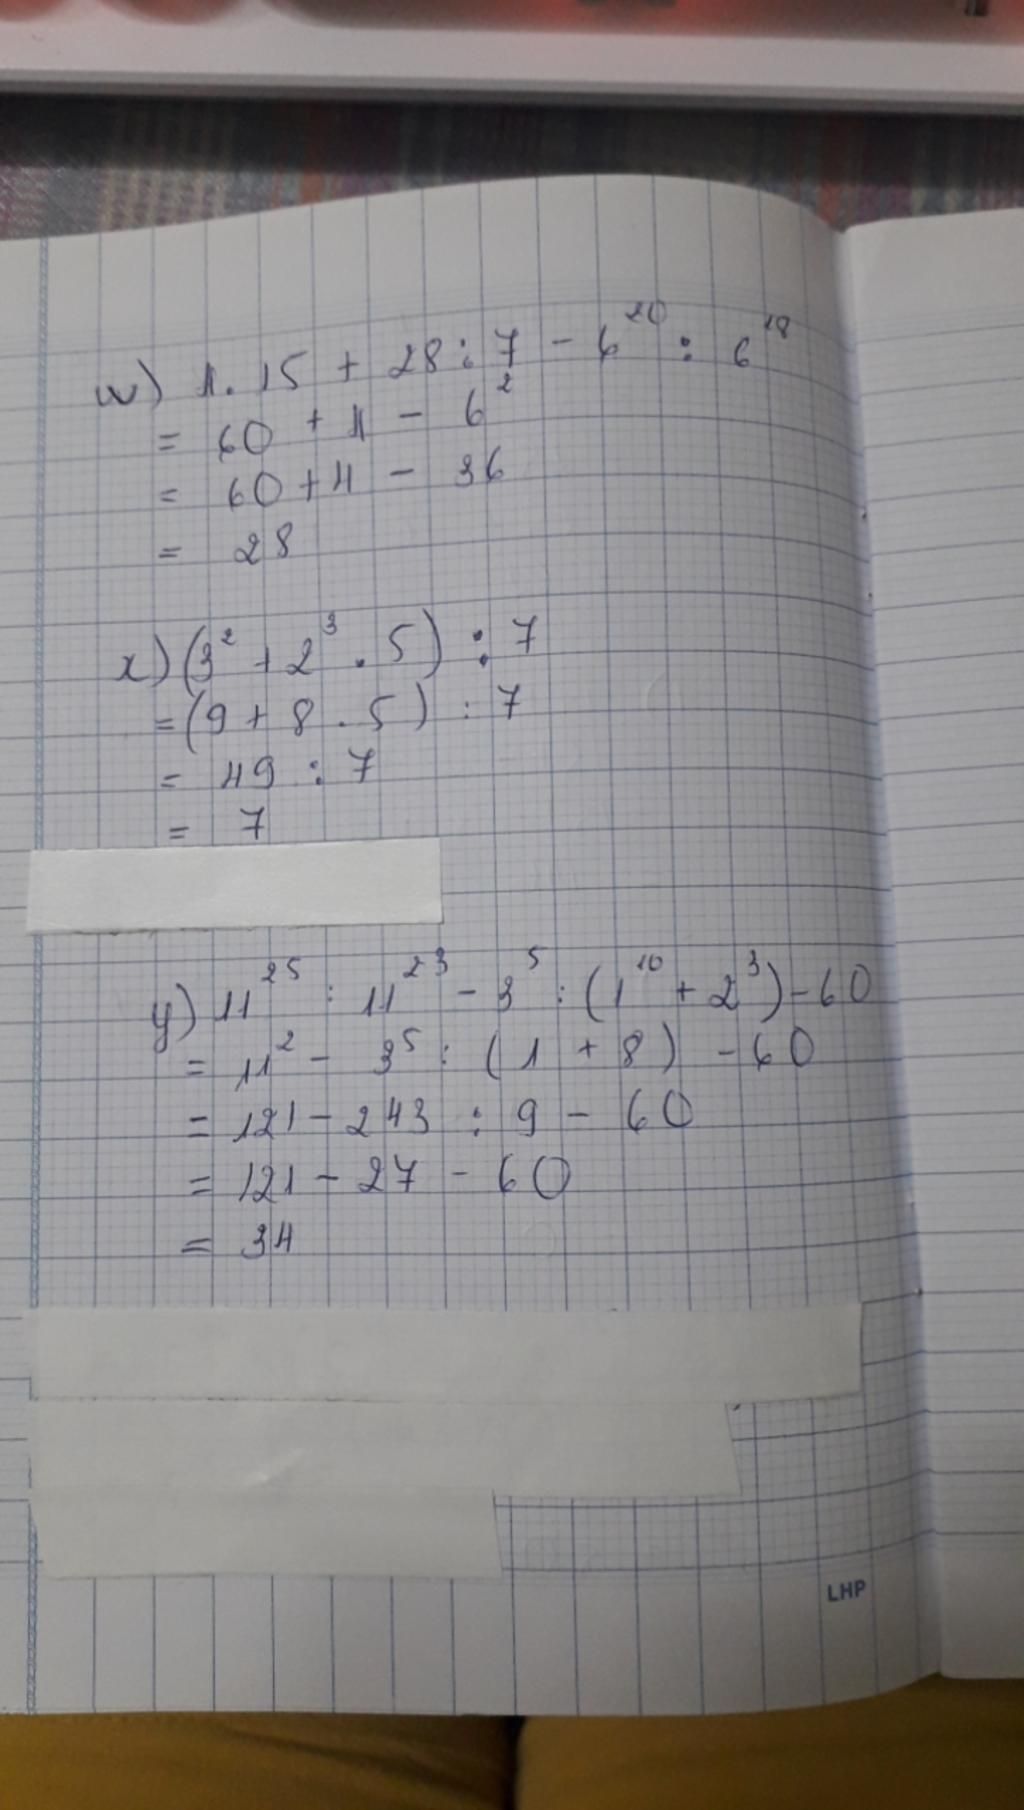 w) 4. 15 + 28 : 7 - 6²⁰ : 6¹⁸
= 60 + 4 - 6²
= 60 + 4 - 36
= 28
x) (3² + 2³ . 5) : 7
= (9 + 8 . 5) : 7
= 49 : 7
= 7
y) 11²⁵ : 11²³ - 3⁵ : (1¹⁰ + 2³) - 60
= 11² - 3⁵ : (1 + 8) - 60
= 121 - 243 : 9 - 60
= 121 - 27 - 60
= 34
LHP